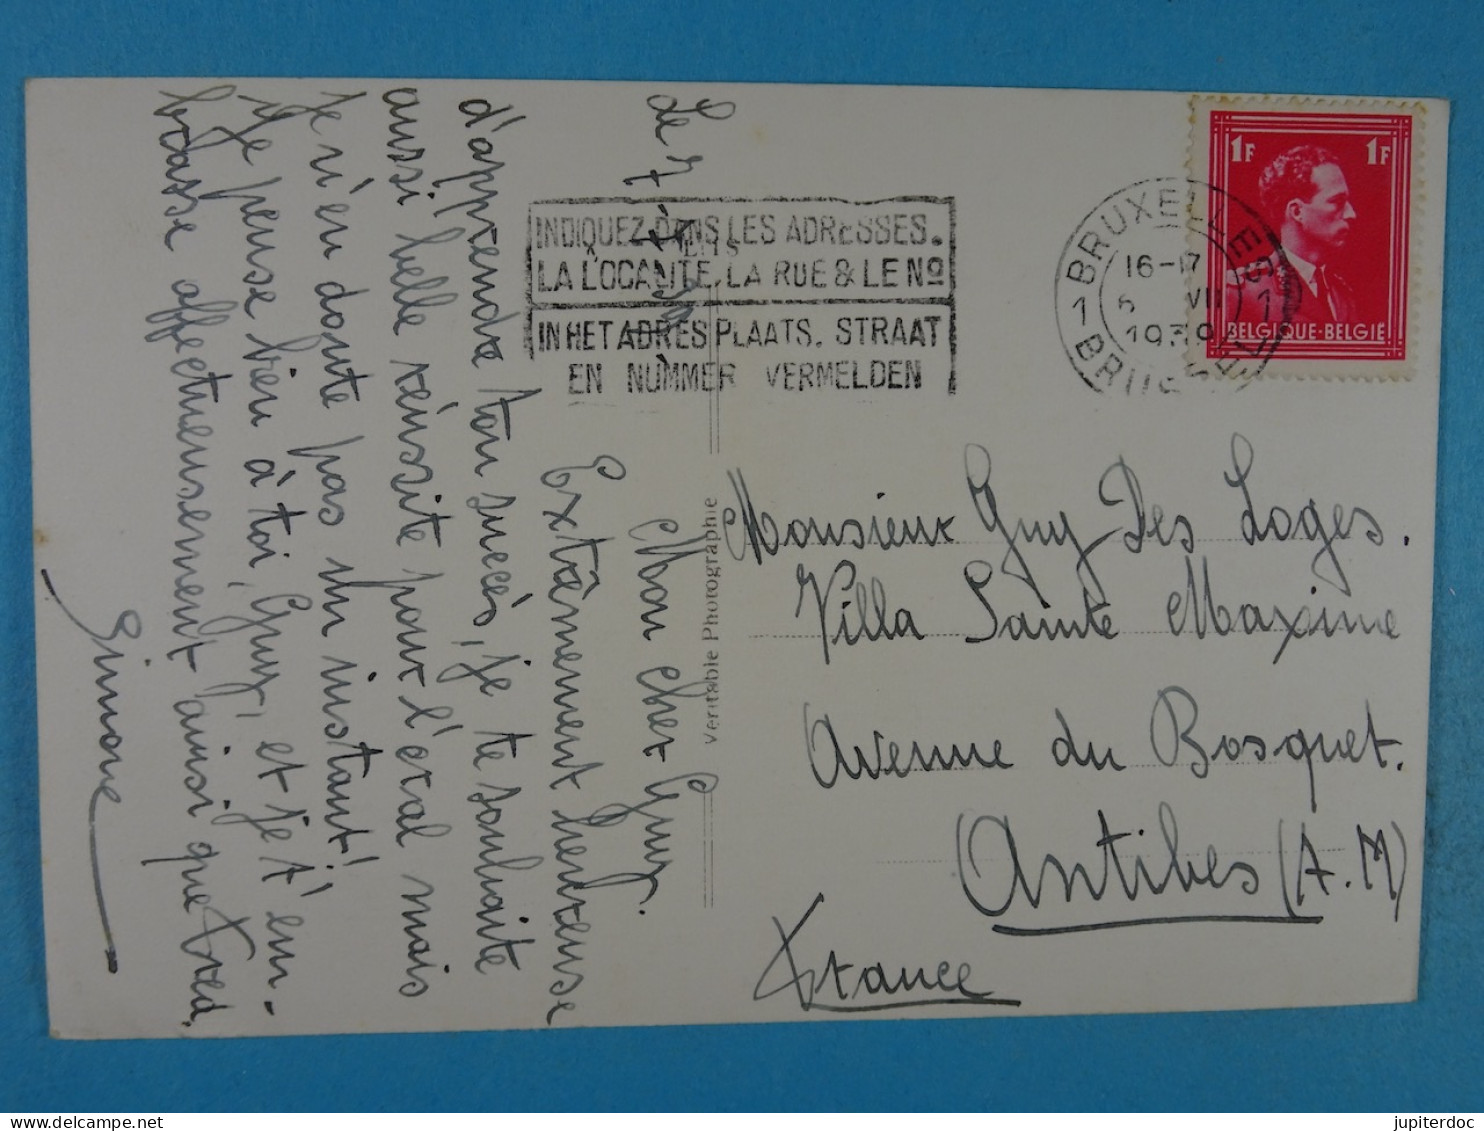 Le 7
Mon cher Guy.
Extrêmement heureuse
d'apprendre ton succès, je te souhaite
aussi belle réussite pour l'oral mais
je n'en doute pas un instant!
Je pense bien à toi, Guy, et je t'em-
brasse affectueusement ainsi que Fred.
Simone
INDIQUEZ DANS LES ADRESSES.
LA LOCALITE, LA RUE & LE No
IN HET ADRES PLAATS, STRAAT
EN NUMMER VERMELDEN
BRUXELLES
1 1
16-17
VII
1939
BRUSSEL
1F 1F
BELGIQUE-BELGIË
Véritable Photographie
Monsieur Guy Des Loges.
Villa Sainte Maxime
Avenue du Bosquet.
Antibes (A.M)
France
jupiterdoc